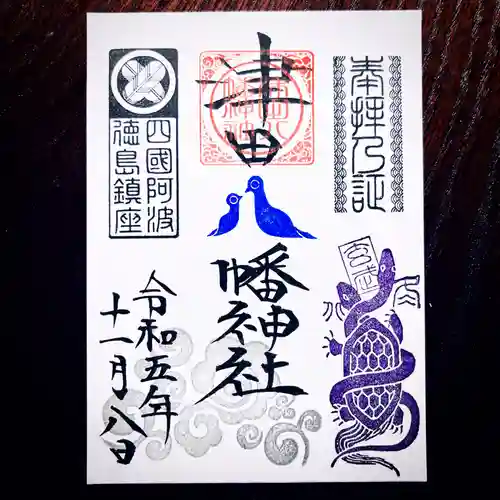 奉拝乃証
玄武
津田
幡神社
四國阿波
徳島鎮座
令和五年
十一月八日